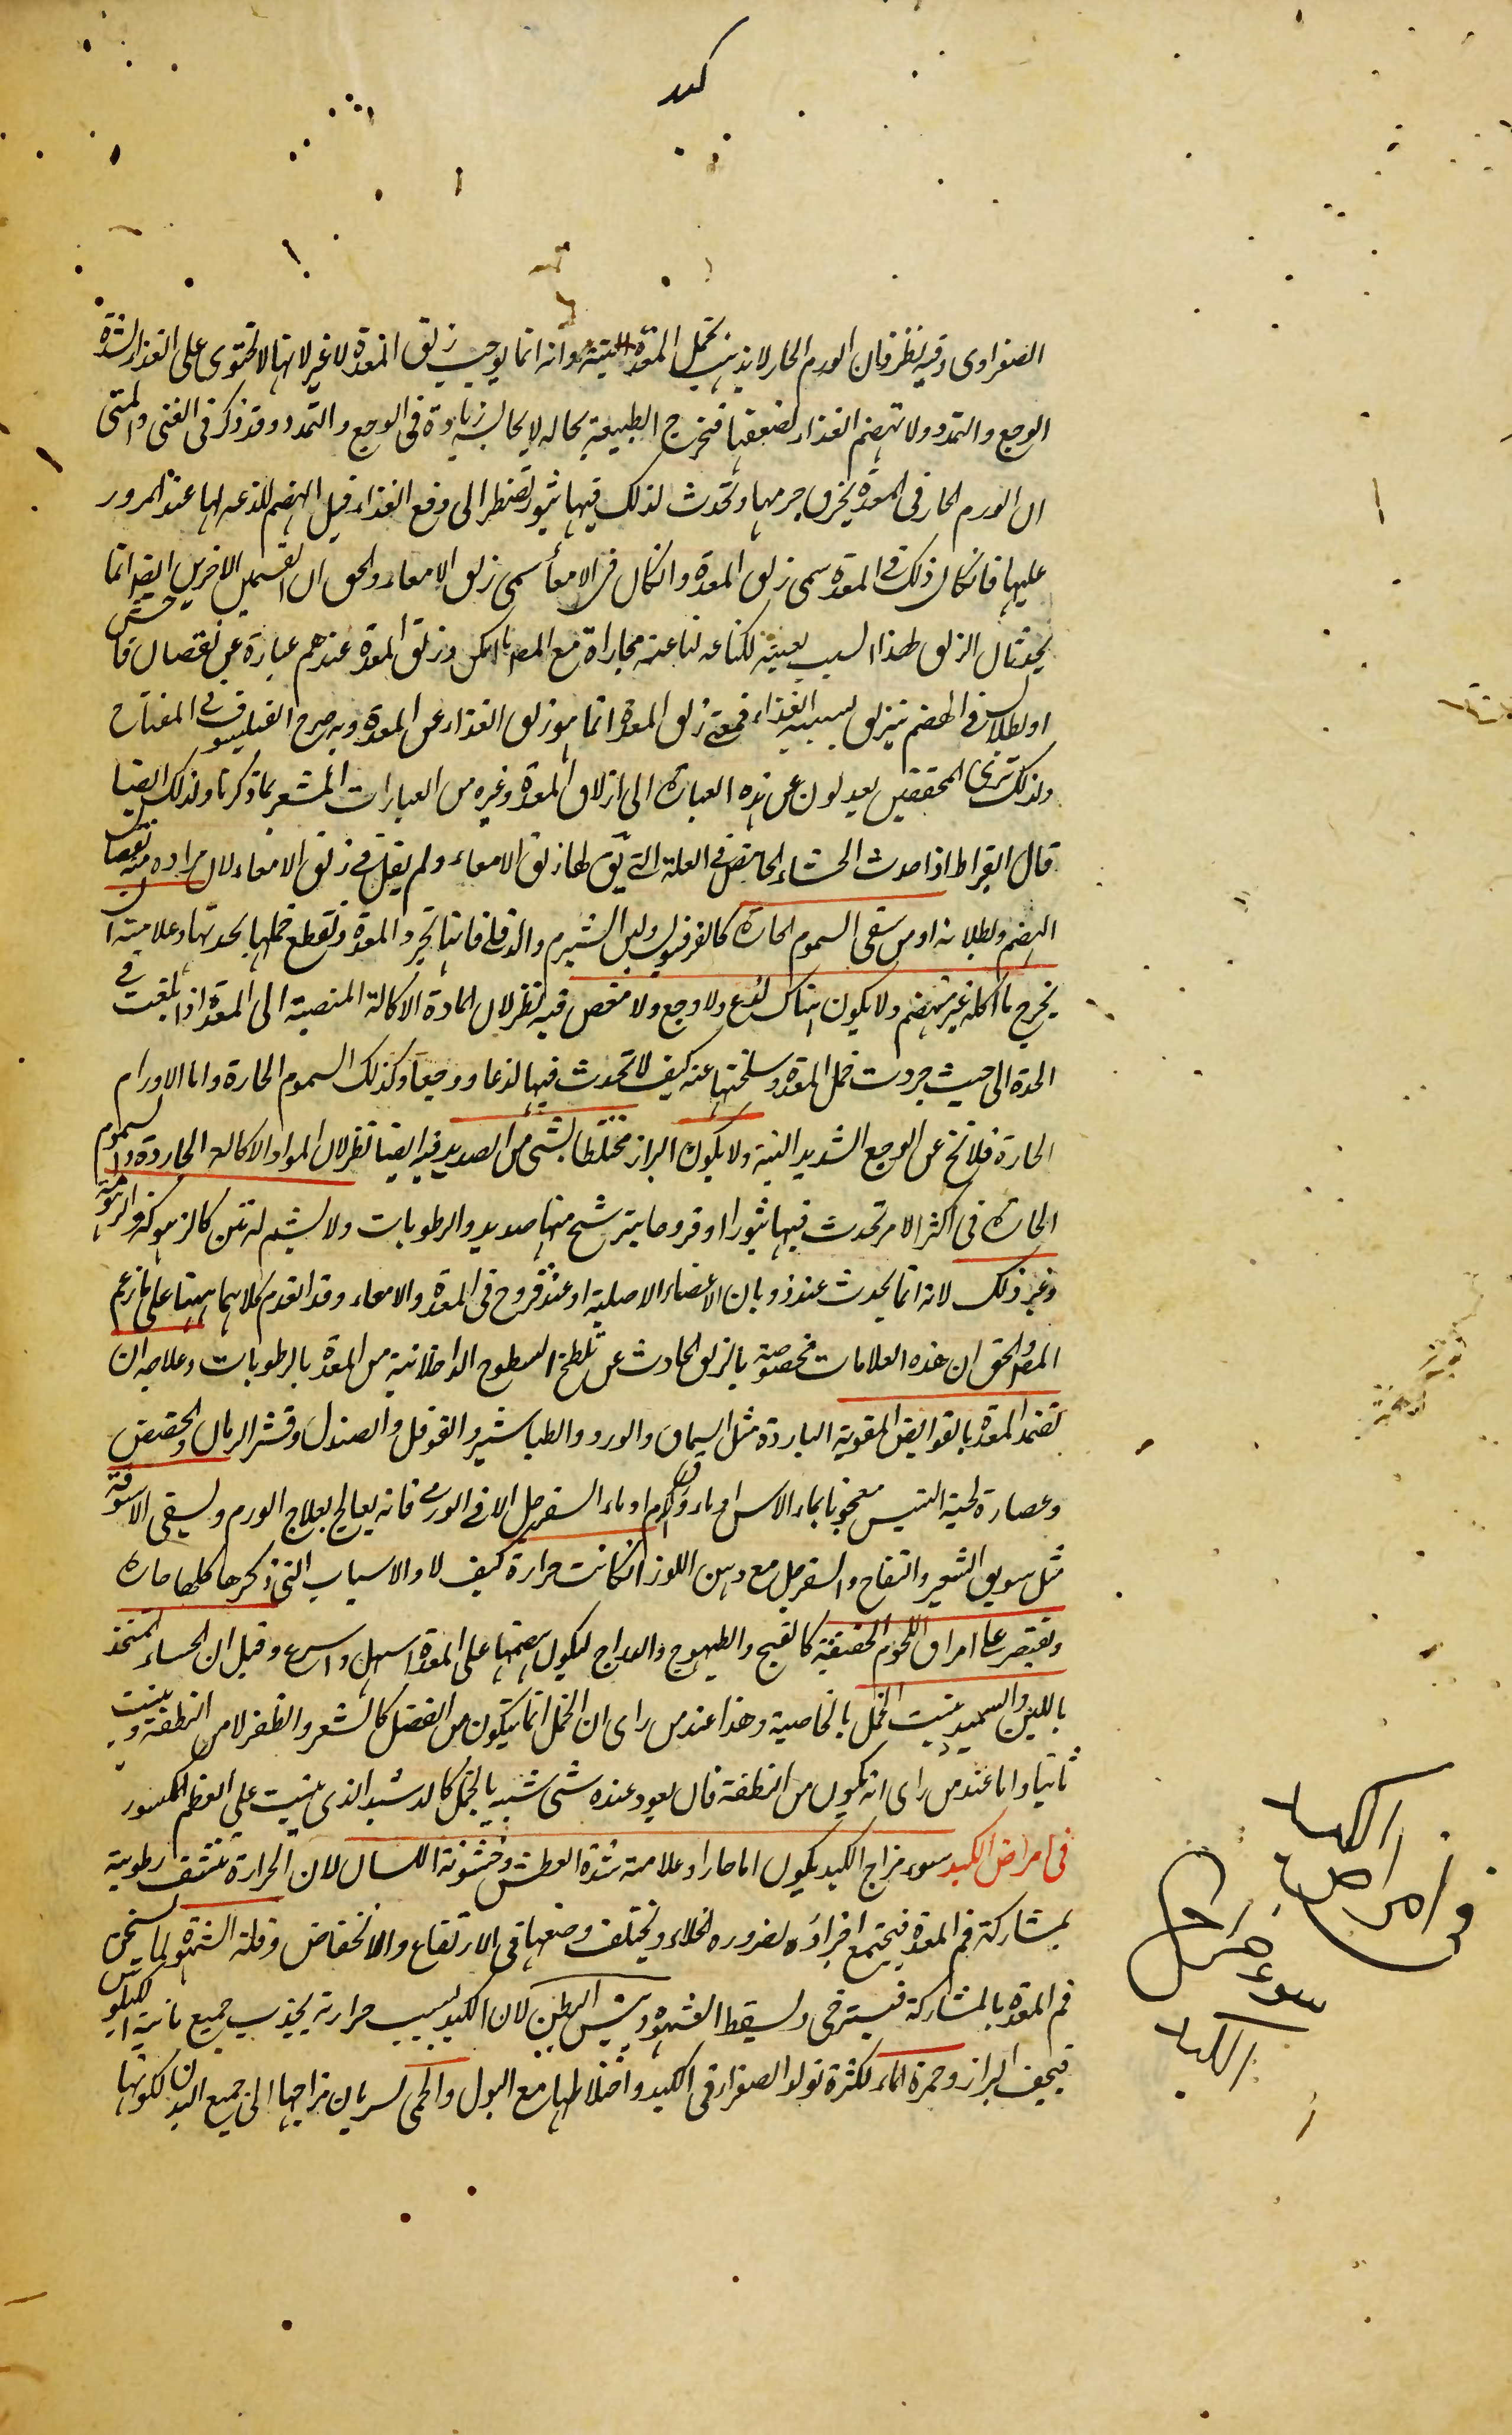 كبد
الصفراوى وفيه نظر فان الورم الحار لا يذهب بخمل المعدة البتة وانه انما يوجب زلق المعدة لا غير لانها لا تحتوى على الغذاء لشدة
الوجع والتمدد ولا تهضم الغذاء لضعفها فتخرج الطبيعة بحاله لا يحاله زيادة فى الوجع والتمدد وقد ذكر فى الغنى والمنى
ان الورم الحار فى المعدة يخرق جرمها وتحدث لذلك فيها بثور تضطر الى دفع الغذاء قبل الهضم للذعه لها عند المرور
عليها فانكان ذلك فى المعدة سمى زلق المعدة وانكان فى الامعاء سمى زلق الامعاء والحق ان القسمين الاخرين ايضا انما
يحدثان الزلق لهذا السبب بعينه مجاراة مع المص ما امكن وزلق المعدة عندهم عبارة عن نقصان
او بطلان فى الهضم ينزلق بسببه الغذاء فمعنى زلق المعدة انما هو زلق الغذاء عن المعدة وبه صرح الفيلسوف فى المفتاح
ولذلك ترى المحققين يعدلون عن هذه العبارة الى ازلاق المعدة وغيره من العبارات المشعر بما ذكرنا ولذلك ايضا
قال ابقراط اذا حدث الجشاء الحامض فى العلة التى يق لها زلق الامعاء ولم يقل فى زلق الامعاء لان مراده منه نقصان
الهضم وبطلانه او من سقى السموم الحارة كالفرفيون ولبن الشبرم والدفلى فانها تجرد المعدة وتقطع خملها بحدتها وعلامته ان
يخرج ما اكله غير منهضم ولا يكون هناك لذع ولا وجع ولا مغص فيه نظر لان المادة الاكالة المنصبة الى المعدة اذا بلغت فى
الحدة الى حيث جردت خمل المعدة وسلختها عنه كيف لا تحدث فيها لذعا ووجعا وكذلك السموم الحارة واما الاورام
الحارة فلا تخ عن الوجع الشديد البتة ولا يكون البراز مختلطا بشئ من الصديد فيه ايضا نظر لان المواد الاكالة الحادة والسموم
الحارة فى اكثر الامر تحدث فيها بثورا او قروحا يترشح منها صديد والرطوبات ولا يشم له نتن كالزهوكة
وغير ذلك لانه انما يحدث عند ذوبان الاعضاء الاصلية او عند قروح فى المعدة والامعاء وقد انعدم كلاهما ههنا على ما زعم
المص والحق ان هذه العلامات مخصوصة بالزلق الحادث عن تلطخ السطوح الداخلانية من المعدة بالرطوبات وعلاجه ان
تضمد المعدة بالقوابض المقوية الباردة مثل السماق والورد والطباشير والفوفل والصندل وقشر الرمان والحضض
وعصارة لحية التيس معجونا بماء الاس او ماء ورق الكرم او ماء السفرجل الا فى الورمى فانه يعالج بعلاج الورم ويسقى الاسوقة
مثل سويق الشعير والتفاح والسفرجل مع دهن اللوز انكانت حرارة كيف لا والاسباب التى ذكرها كلها حارة
ويقتصر على امراق اللحوم الخفيفة كالقبج والطيهوج والدراج ليكون هضمها على المعدة اسهل واسرع وقيل ان الحساء المتخذ
باللبن والسميد ينبت الخمل بالخاصية وهذا عند من راى ان الخمل انما يتكون من الفضل كالشعر والظفر لا من النطفة وينبت
ثانيا واما عند من راى انه يكون من النطفة قال يعود عنده شئ شبيه بالخمل كالدشبد الذى ينبت على العظم المكسور
فى امراض الكبد سوء مزاج الكبد يكون اما حارا وعلامته شدة العطش وخشونة اللسان لان الحرارة تنشف رطوبته
بمشاركة فم المعدة فيجتمع اجزاؤه لضرورة الخلاء ويختلف وضعها فى الارتفاع والانخفاض وقلة الشهوة لما يسخن
فم المعدة بالمشاركة فيسترخى ويسقط الشهوة ويبس البطن لان الكبد بسبب حرارته يجذب جميع مائية الكيلوس
فيجف البراز وحمرة الماء لكثرة تولد الصفراء فى الكبد واختلاطها مع البول والحمى لسريان مزاجها الى جميع البدن لكونها
فى امراض الكبد
سوء مزاج
الكبد